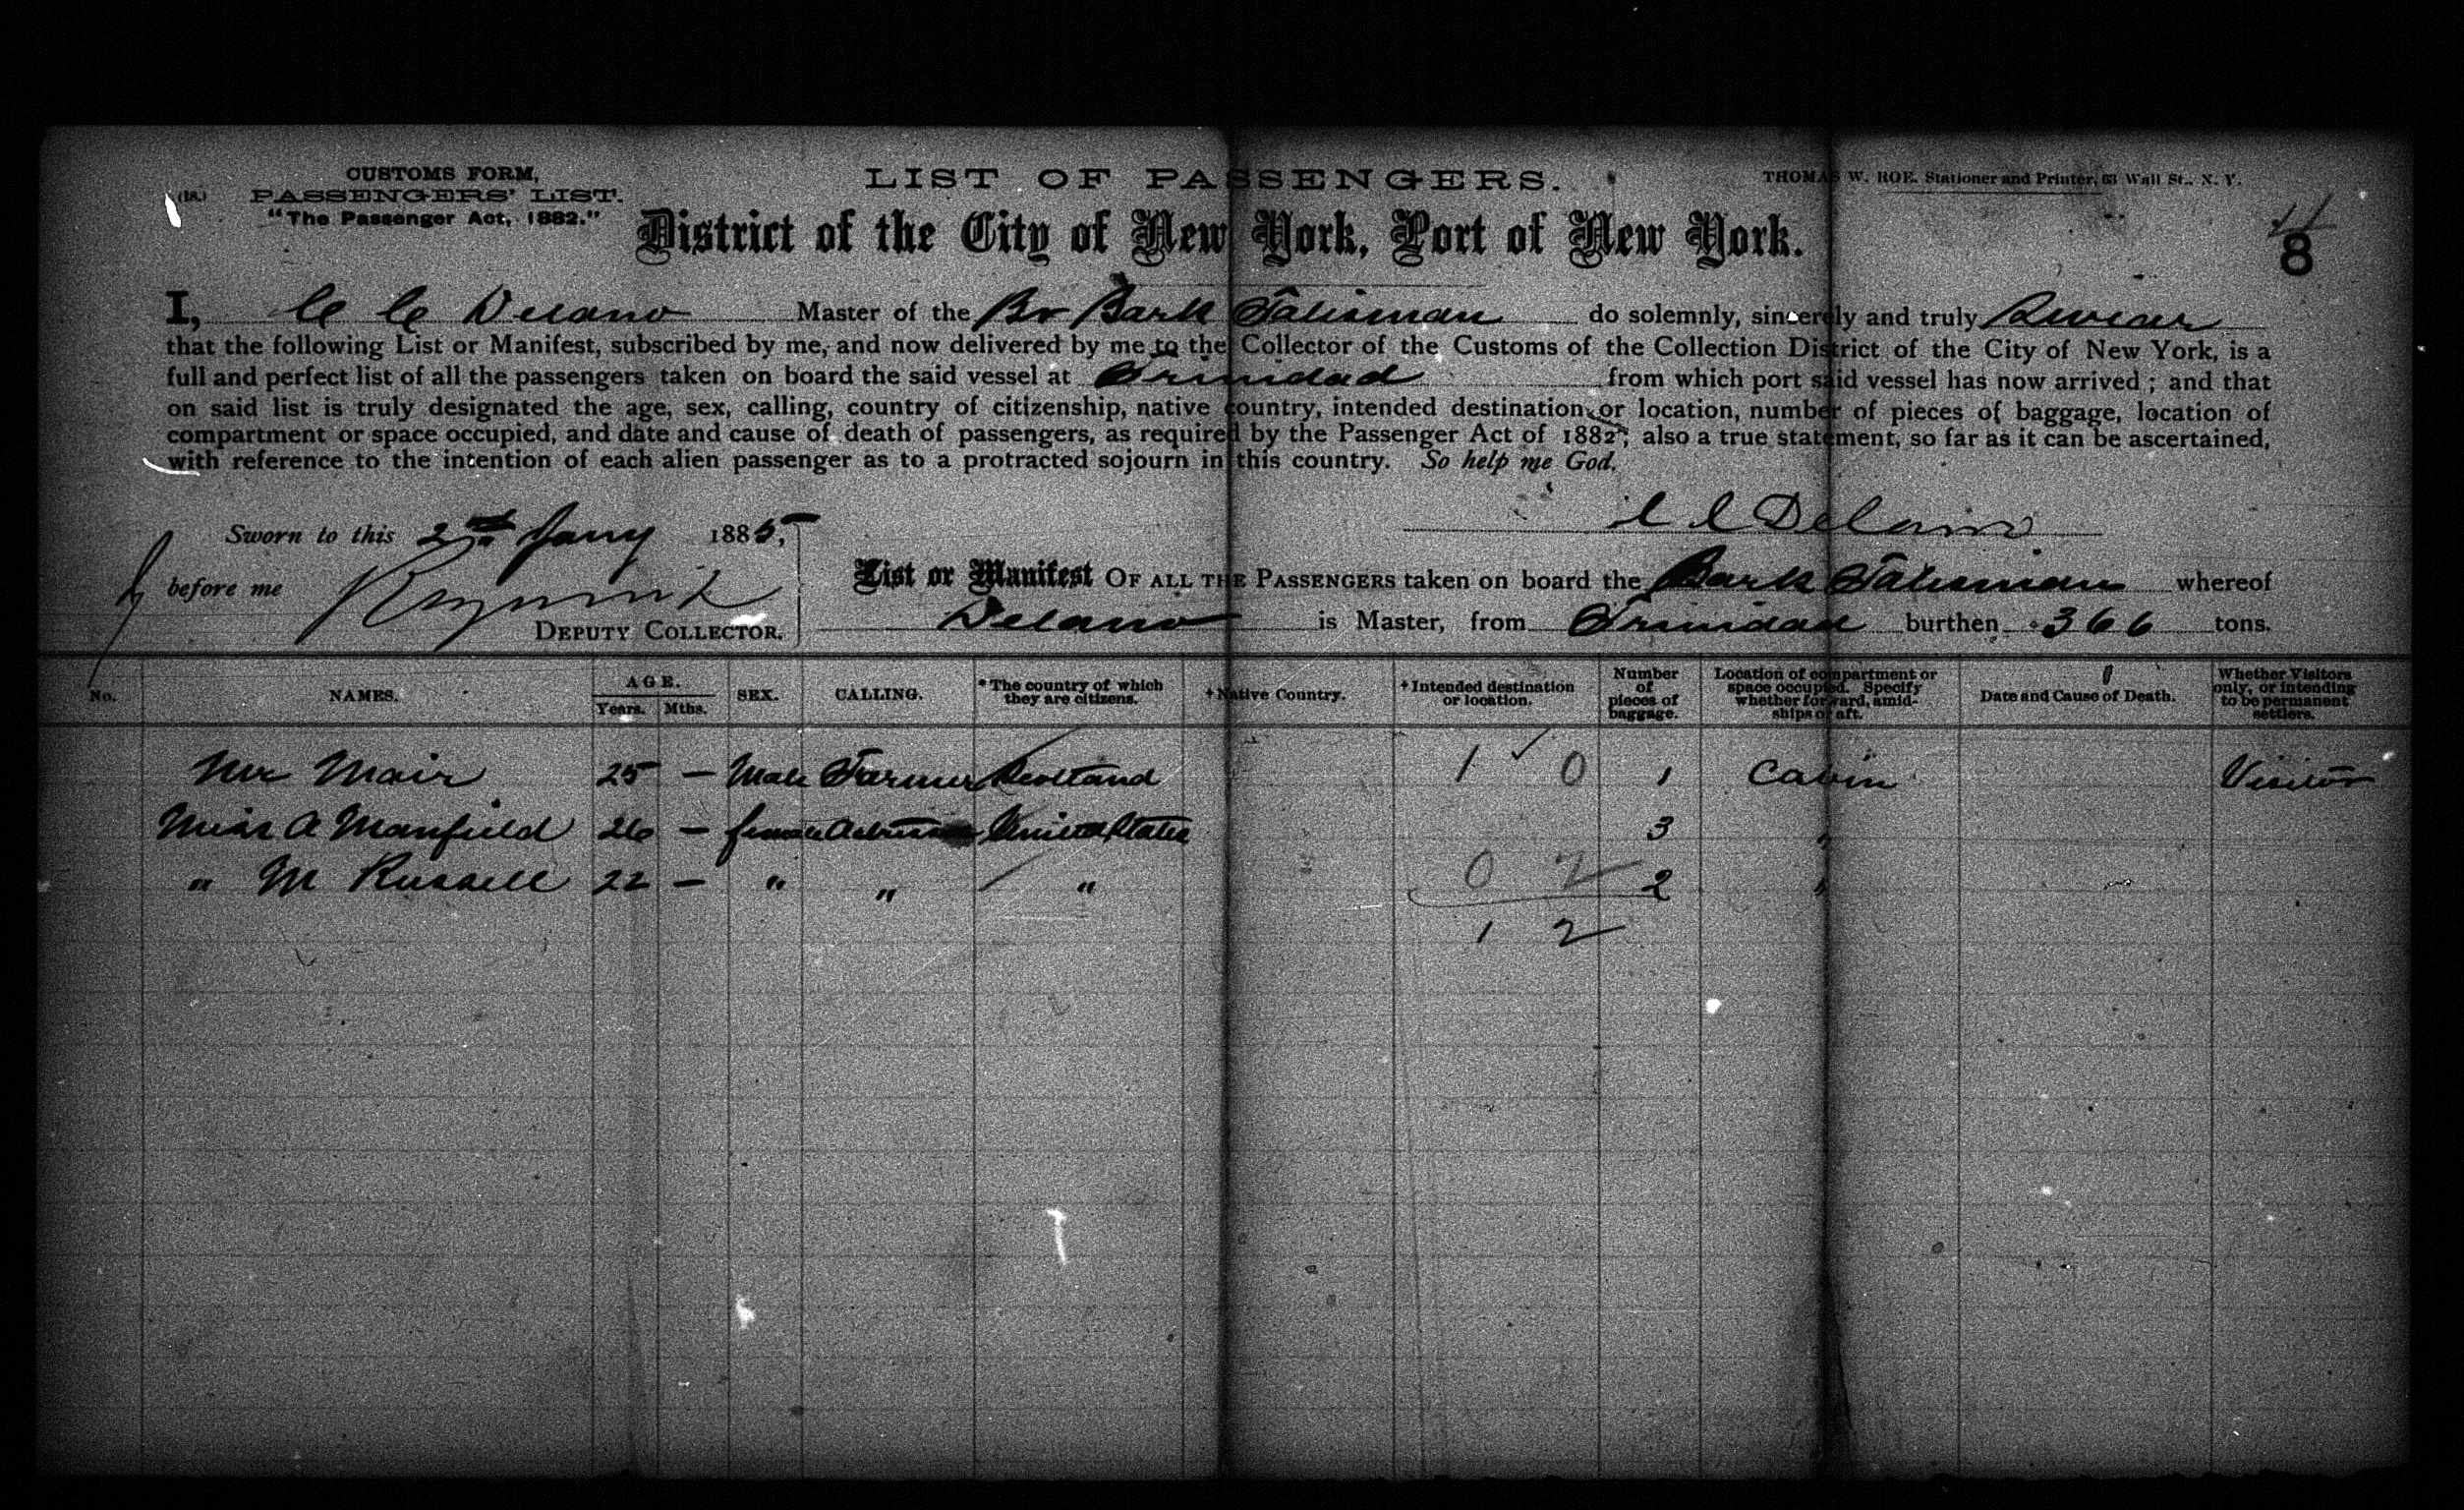 CUSTOMS FORM,
(18.) PASSENGERS' LIST.
"The Passenger Act, 1882."
LIST OF PASSENGERS.
THOMAS W. ROE. Stationer and Printer, 63 Wall St., N. Y.
District of the City of New York, Port of New York.
8
I, C C Delano Master of the Br Bark Talisman do solemnly, sincerely and truly Swear
that the following List or Manifest, subscribed by me, and now delivered by me to the Collector of the Customs of the Collection District of the City of New York, is a
full and perfect list of all the passengers taken on board the said vessel at Trinidad from which port said vessel has now arrived; and that
on said list is truly designated the age, sex, calling, country of citizenship, native country, intended destination or location, number of pieces of baggage, location of
compartment or space occupied, and date and cause of death of passengers, as required by the Passenger Act of 1882; also a true statement, so far as it can be ascertained,
with reference to the intention of each alien passenger as to a protracted sojourn in this country. So help me God.
C C Delano
Sworn to this 2nd Jany 1885,
before me
DEPUTY COLLECTOR.
List or Manifest OF ALL THE PASSENGERS taken on board the Bark Talisman whereof
Delano is Master, from Trinidad burthen 366 tons.
No. NAMES. AGE. Years. Mths. SEX. CALLING. *The country of which they are citizens. †Native Country. †Intended destination or location. Number of pieces of baggage. Location of compartment or space occupied. Specify whether forward, amidships or aft. Date and Cause of Death. Whether Visitors only, or intending to be permanent settlers.
Mr Mair 25 — Male Farmer Scotland 1 0 1 Cabin Visitor
Miss A Manfield 26 — female United States 3 "
" M Russell 22 — " " " 0 2 2 "
1 2